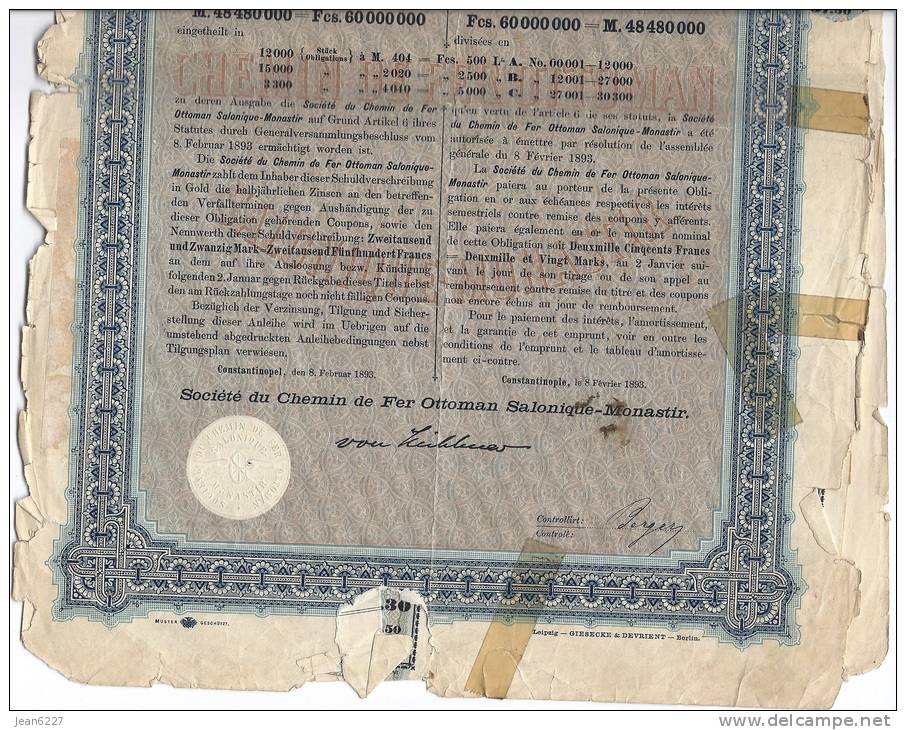 M. 48 480 000 = Fcs. 60 000 000
eingetheilt in
12 000 { Stück (obligations) } à M. 404 = Fcs. 500 La A. No. 00 001—12 000
15 000 „ „ „ 2020 „ 2 500 „ B. „ 12 001—27 000
3 300 „ „ „ 4040 „ 5 000 „ C. „ 27 001—30 300
zu deren Ausgabe die Société du Chemin de Fer
Ottoman Salonique-Monastir auf Grund Artikel 6 ihres
Statutes durch Generalversammlungsbeschluss vom
8. Februar 1893 ermächtigt worden ist.
Die Société du Chemin de Fer Ottoman Salonique-
Monastir zahlt dem Inhaber dieser Schuldverschreibung
in Gold die halbjährlichen Zinsen an den betreffen-
den Verfallterminen gegen Aushändigung der zu
dieser Obligation gehörenden Coupons, sowie den
Nennwerth dieser Schuldverschreibung: Zweitausend
und Zwanzig Mark=Zweitausend Fünfhundert Francs
an dem auf ihre Ausloosung bezw. Kündigung
folgenden 2. Januar gegen Rückgabe dieses Titels nebst
den am Rückzahlungstage noch nicht fälligen Coupons.
Bezüglich der Verzinsung, Tilgung und Sicher-
stellung dieser Anleihe wird im Uebrigen auf die
umstehend abgedruckten Anleihebedingungen nebst
Tilgungsplan verwiesen.
Constantinopel, den 8. Februar 1893.
Fcs. 60 000 000 = M. 48 480 000
divisées en
qu'en vertu de l'article 6 de ses statuts, la Société
du Chemin de Fer Ottoman Salonique-Monastir a été
autorisée à émettre par résolution de l'assemblée
générale du 8 Février 1893.
La Société du Chemin de Fer Ottoman Salonique-
Monastir paiera au porteur de la présente Obli-
gation en or aux échéances respectives les intérêts
semestriels contre remise des coupons y afférents.
Elle paiera également en or le montant nominal
de cette Obligation soit Deuxmille Cinqcents Francs
= Deuxmille et Vingt Marks, au 2 Janvier sui-
vant le jour de son tirage ou de son appel au
remboursement contre remise du titre et des coupons
non encore échus au jour de remboursement.
Pour le paiement des intérêts, l'amortissement,
et la garantie de cet emprunt, voir en outre les
conditions de l'emprunt et le tableau d'amortisse-
ment ci-contre.
Constantinople, le 8 Février 1893.
Société du Chemin de Fer Ottoman Salonique-Monastir.
CHEMIN DE FER
SALONIQUE
MONASTIR
Controllirt:
Controlé:
MUSTER GESCHÜTZT.
30
50
Leipzig — GIESECKE & DEVRIENT — Berlin.
jean6227
delcampe.net